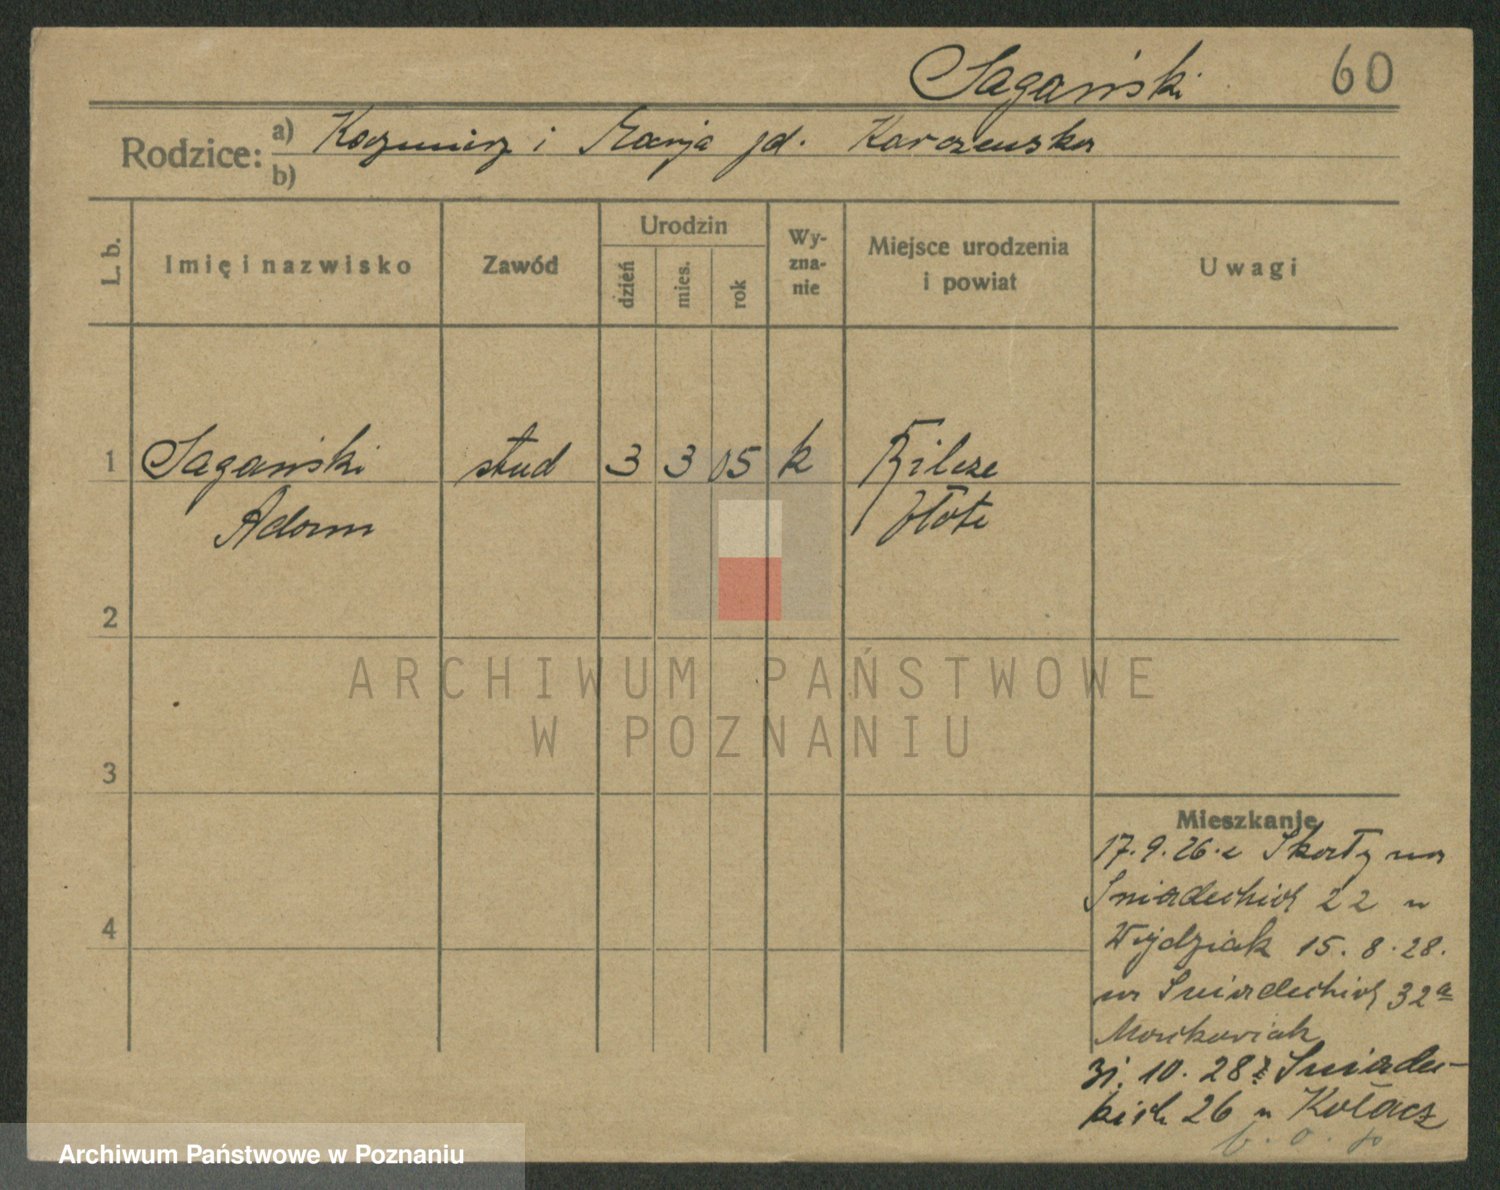 Sagański 60
Rodzice: a) Kazimierz i Marja zd. Karczewska
b)
L. b. Imię i nazwisko Zawód Urodzin dzień mies. rok Wy-zna-nie Miejsce urodzenia i powiat Uwagi
1 Sagański stud 3 3 05 k Bilcze
Adam Złote
2
ARCHIWUM PAŃSTWOWE
W POZNANIU
3
Mieszkanie
17. 9. 26. z Skały na
Śniadeckich 22 u
4
Wojdziak 15. 8. 28.
na Śniadeckich 32a
31. 10. 28 z Śniadec-
kich 26 u Kołacz
b. o. p
Archiwum Państwowe w Poznaniu